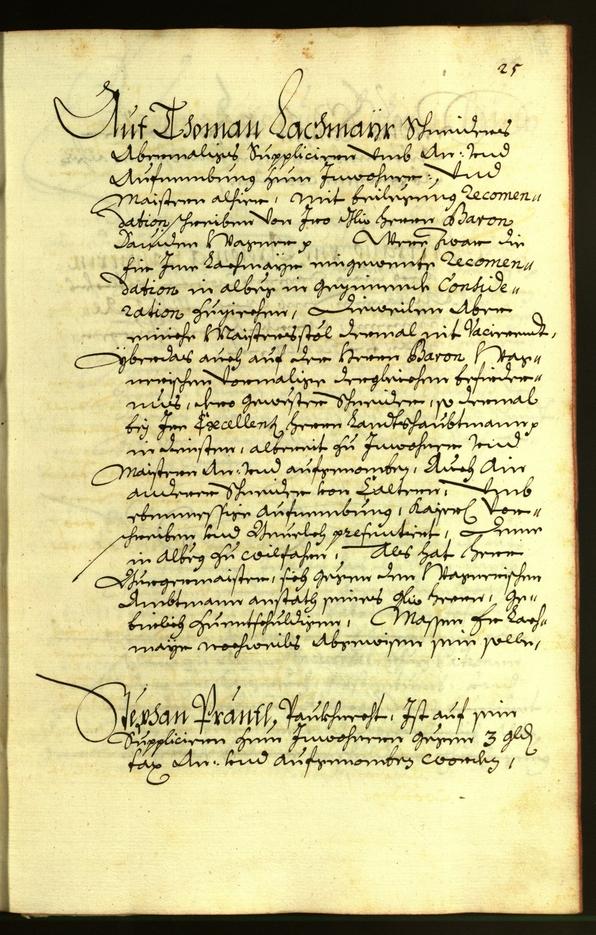 25
Auf Thoman Lachmayr Schneiders
Abermaliges Suppliciren vmb An: vnd
Aufnembung zum Inwohner, vnd
Maistern alhier, mit beilegung Recomen-
dation schreiben von Iro Herrn Baron
Dauiden Wagner Were zwar die
für Ine Lachmayr eingewente Recomen-
dation in albeg in gezimende Conside-
ration zuziechen, Dieweilen Aber
ainiche Maisterstöl dermal nit Vacierendt,
Yberdas auch auf des Herrn Baron Wag-
nerischen vormalige dergleichen befürder-
nus, dero gewesten Schneider, so dermal
bey Ir Excellenz Herrn Landtshaubtman
in diensten, alberait zu Inwohner vnd
Maistern An: vnd aufgenomben, Auch Ain
anderer Schneider von Caltern, vmb
ebenmessige aufnembung, Kayserl: Vor-
schreiben vnd Beuelch presentiert, Deme
in albeg zu wilfahren, Als hat Herr
Burgermaister, sich gegen den Wagnerischen
Ambtmann anstath seines Herrn, ge-
bürlich zuentschuldigen, Massen Er Lach-
mayr nochmals Abgewisen sein solle,
Stephan Präntl, Paukhnecht, Ist auf sein
Suppliciren zum Inwohnern gegen 3 gld
tax An: vnd aufgenomben worden,